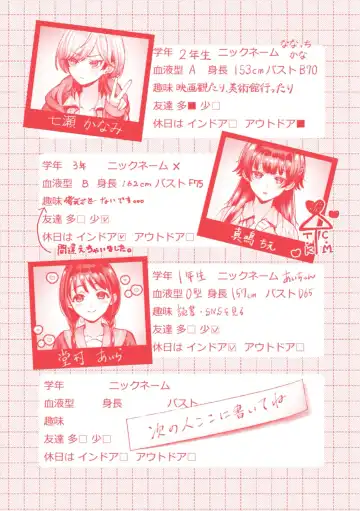 学年 2年生 ニックネーム ななっち かな
血液型 A 身長 153cm バスト B70
趣味 映画観たり、美術館行ったり
友達 多■ 少□
休日は インドア□ アウトドア■
七瀬 かなみ
学年 3年 ニックネーム ×
血液型 B 身長 162cm バスト F75
趣味 ないです。。。
友達 多□ 少☑
休日は インドア☑ アウトドア□
間違えちゃいました。
真鳴 ちえ
学年 1年生 ニックネーム あいちゃん
血液型 O型 身長 157cm バスト D65
趣味 読書・SNSを見る
友達 多□ 少☑
休日は インドア☑ アウトドア□
堂村 あいら
学年 ニックネーム
血液型 身長 バスト
趣味
友達 多□ 少□
休日は インドア□ アウトドア□
次の人ここに書いてね